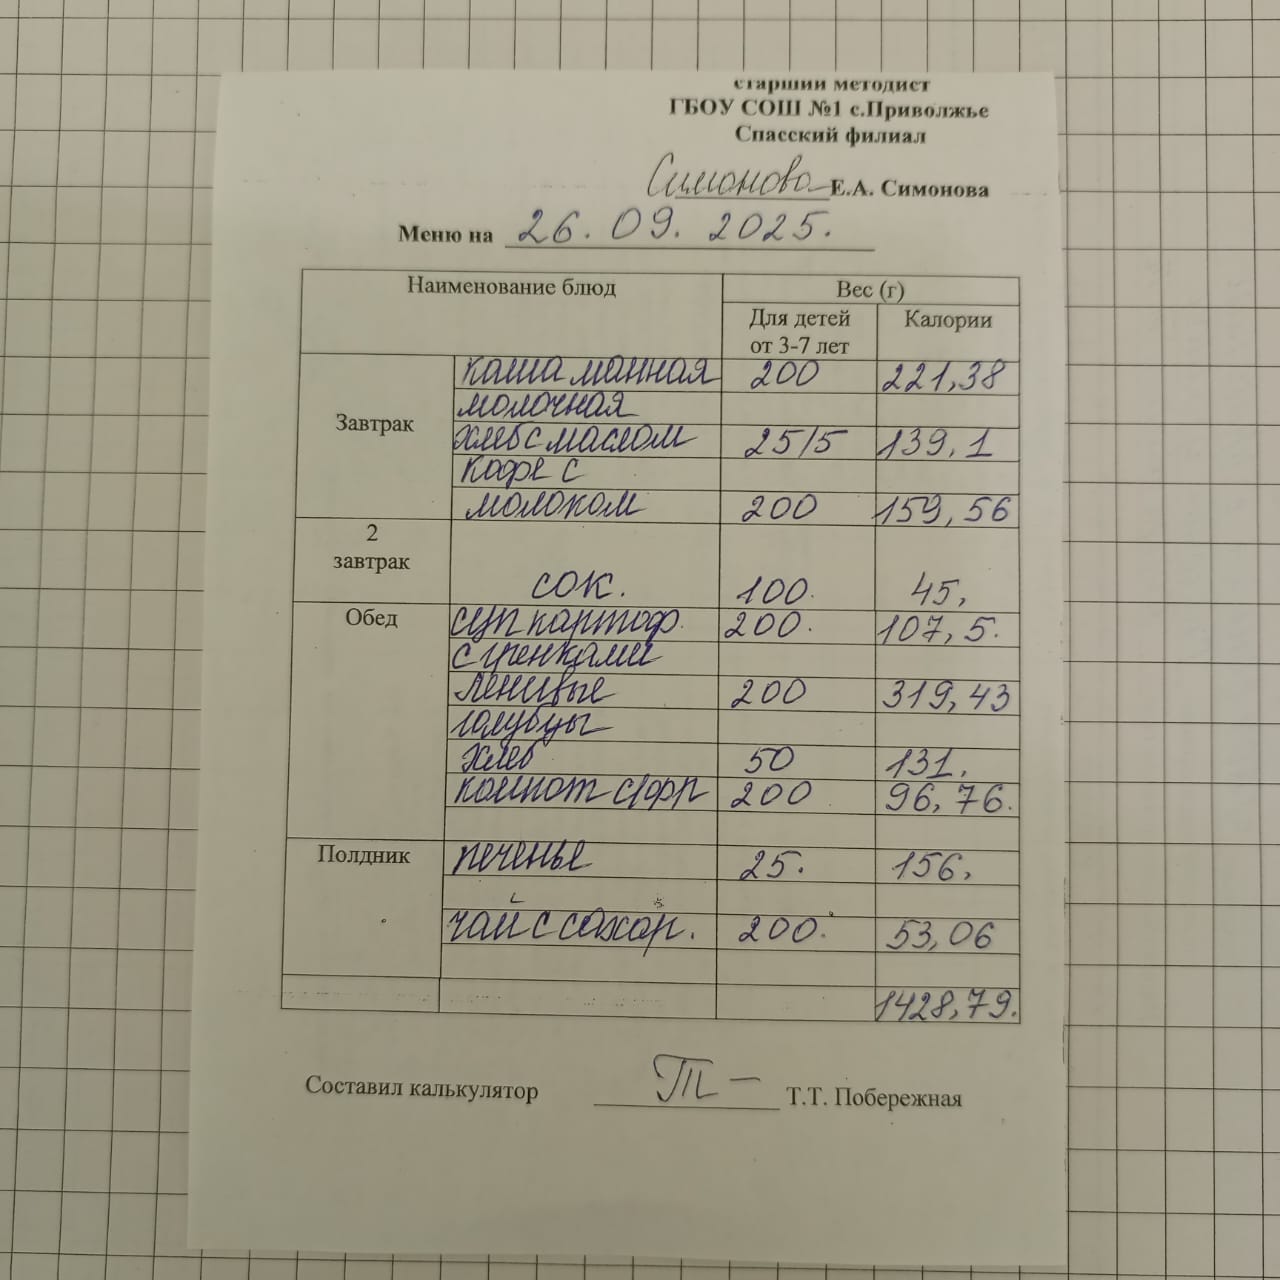 старший методист
ГБОУ СОШ №1 с.Приволжье
Спасский филиал
Симонова Е.А. Симонова
Меню на 26.09.2025.
Наименование блюд Вес (г)
Для детей от 3-7 лет Калории
Завтрак
каша манная 200 221,38
молочная
хлеб с маслом 25/5 139,1
кофе с
молоком 200 159,56
2 завтрак
сок. 100. 45,
Обед
суп картоф. 200. 107,5.
с гренками
ленивые 200 319,43
голубцы
хлеб 50 131,
компот с/фр 200 96,76.
Полдник
печенье 25. 156,
чай с сахар. 200. 53,06
1428,79.
Составил калькулятор Т.Т. Побережная